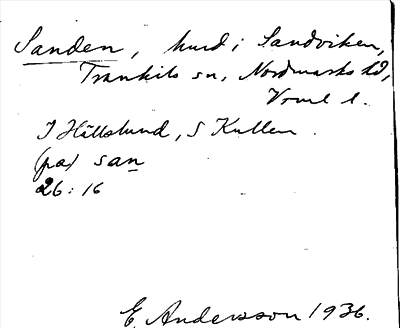 Sanden, hmd i Sandviken,
Trankils sn, Nordmarks hd,
Vrml l.
I Hällslund, S Kullen.
(på) san
26: 16
E. Andersson 1936.